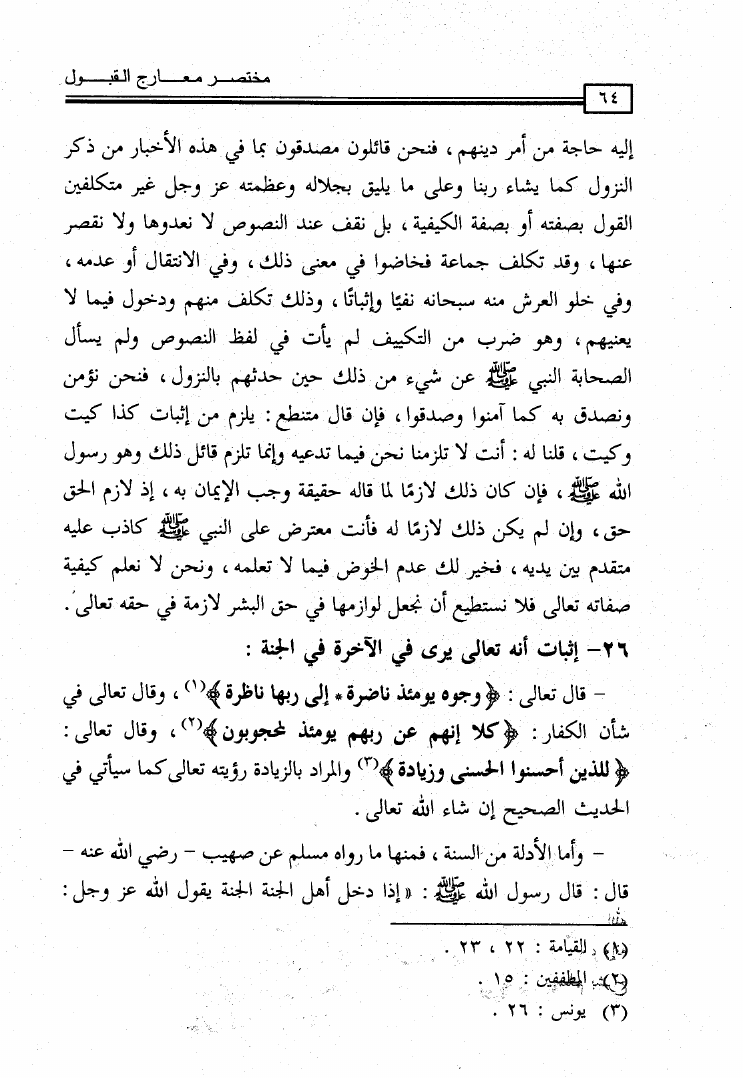 مختصر معارج القبول
٦٤
إليه حاجة من أمر دينهم ، فنحن قائلون مصدقون بما في هذه الأخبار من ذكر
النزول كما يشاء ربنا وعلى ما يليق بجلاله وعظمته عز وجل غير متكلفين
القول بصفته أو بصفة الكيفية ، بل نقف عند النصوص لا نعدوها ولا نقصر
عنها ، وقد تكلف جماعة فخاضوا في معنى ذلك ، وفي الانتقال أو عدمه ،
وفي خلو العرش منه سبحانه نفيًا وإثباتًا ، وذلك تكلف منهم ودخول فيما لا
يعنيهم ، وهو ضرب من التكييف لم يأت في لفظ النصوص ولم يسأل
الصحابة النبي ﷺ عن شيء من ذلك حين حدثهم بالنزول ، فنحن نؤمن
ونصدق به كما آمنوا وصدقوا ، فإن قال متنطع : يلزم من إثبات كذا كيت
وكيت ، قلنا له : أنت لا تلزمنا نحن فيما تدعيه وإنما تلزم قائل ذلك وهو رسول
الله ﷺ ، فإن كان ذلك لازمًا لما قاله حقيقة وجب الإيمان به ، إذ لازم الحق
حق ، وإن لم يكن ذلك لازمًا له فأنت معترض على النبي ﷺ كاذب عليه
متقدم بين يديه ، فخير لك عدم الخوض فيما لا تعلمه ، ونحن لا نعلم كيفية
صفاته تعالى فلا نستطيع أن نجعل لوازمها في حق البشر لازمة في حقه تعالى .
٢٦- إثبات أنه تعالى يرى في الآخرة في الجنة :
– قال تعالى : ﴿ وجوه يومئذ ناضرة * إلى ربها ناظرة ﴾(١) ، وقال تعالى في
شأن الكفار : ﴿ كلا إنهم عن ربهم يومئذ لمحجوبون ﴾(٢) ، وقال تعالى :
﴿ للذين أحسنوا الحسنى وزيادة ﴾(٣) والمراد بالزيادة رؤيته تعالى كما سيأتي في
الحديث الصحيح إن شاء الله تعالى .
– وأما الأدلة من السنة ، فمنها ما رواه مسلم عن صهيب – رضي الله عنه –
قال : قال رسول الله ﷺ : « إذا دخل أهل الجنة الجنة يقول الله عز وجل :
(١) القيامة : ٢٢ ، ٢٣ .
(٢) المطففين : ١٥ .
(٣) يونس : ٢٦ .